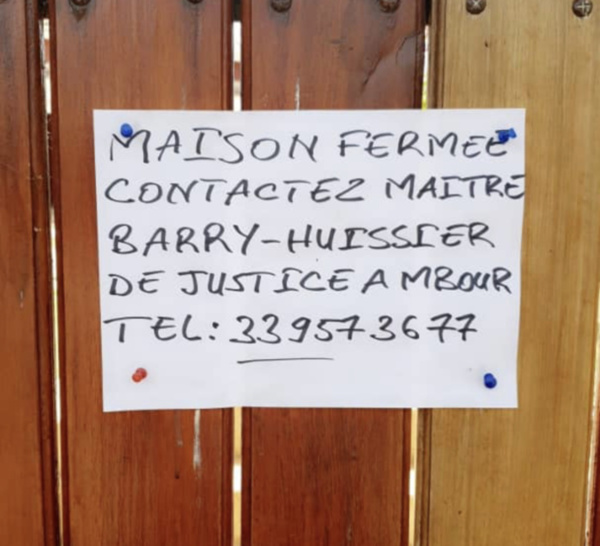 MAISON FERMEE
CONTACTEZ MAITRE
BARRY-HUISSIER
DE JUSTICE A MBOUR
TEL: 339573677